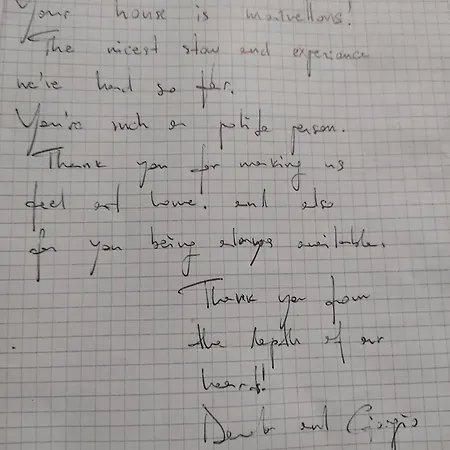 Your house is marvellous!
The nicest stay and experience
we've had so far.
You're such a polite person.
Thank you for making us
feel at home. and also
for you being always available.
Thank you from
the depth of our
hearts!
and Giorgio